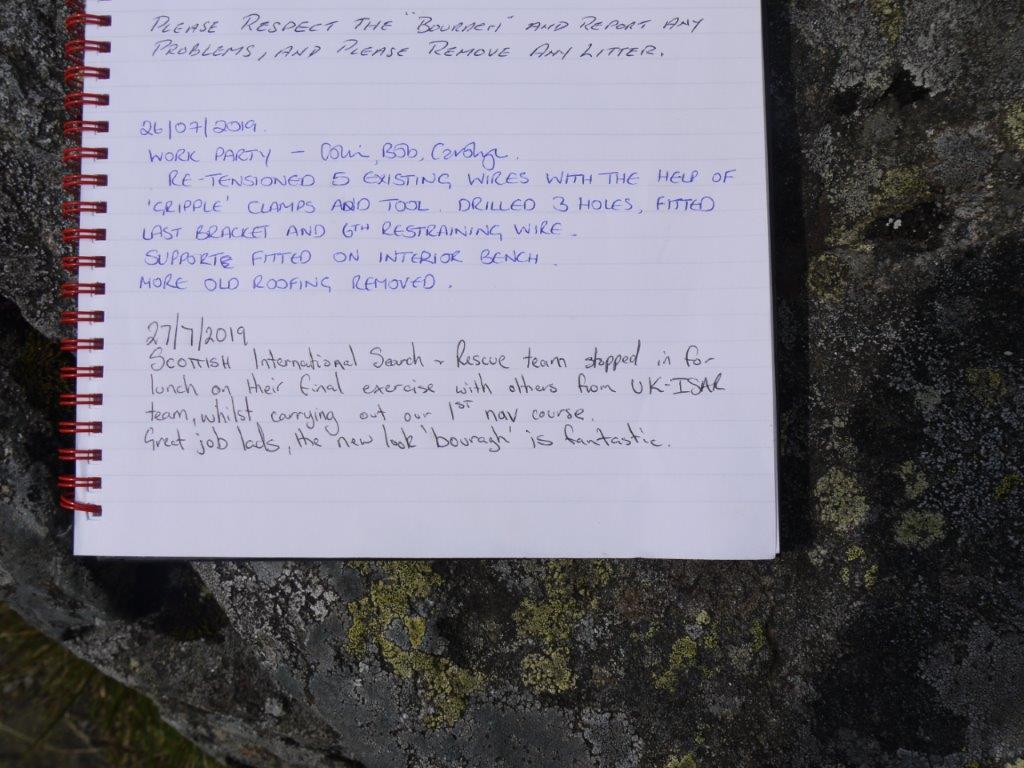 PLEASE RESPECT THE "BOURACH" AND REPORT ANY
PROBLEMS, AND PLEASE REMOVE ANY LITTER.
26/07/2019.
WORK PARTY - Colin, Bob, Carolyn.
RE-TENSIONED 5 EXISTING WIRES WITH THE HELP OF
'GRIPPLE' CLAMPS AND TOOL. DRILLED 3 HOLES, FITTED
LAST BRACKET AND 6TH RESTRAINING WIRE.
SUPPORTS FITTED ON INTERIOR BENCH.
MORE OLD ROOFING REMOVED.
27/7/2019
SCOTTISH International Search + Rescue team stopped in for
lunch on their final exercise with others from UK-ISAR
team, whilst carrying out our 1ST nav course.
Great job lads, the new look 'bouragh' is fantastic.